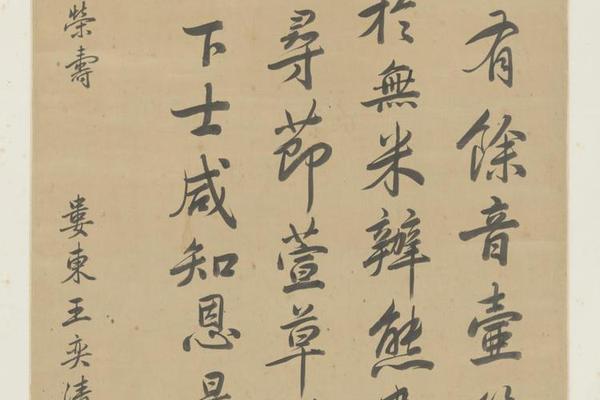 有餘音壺
於無米辨熊
尋節萱草
下士咸知恩
榮壽
婁東王奕清